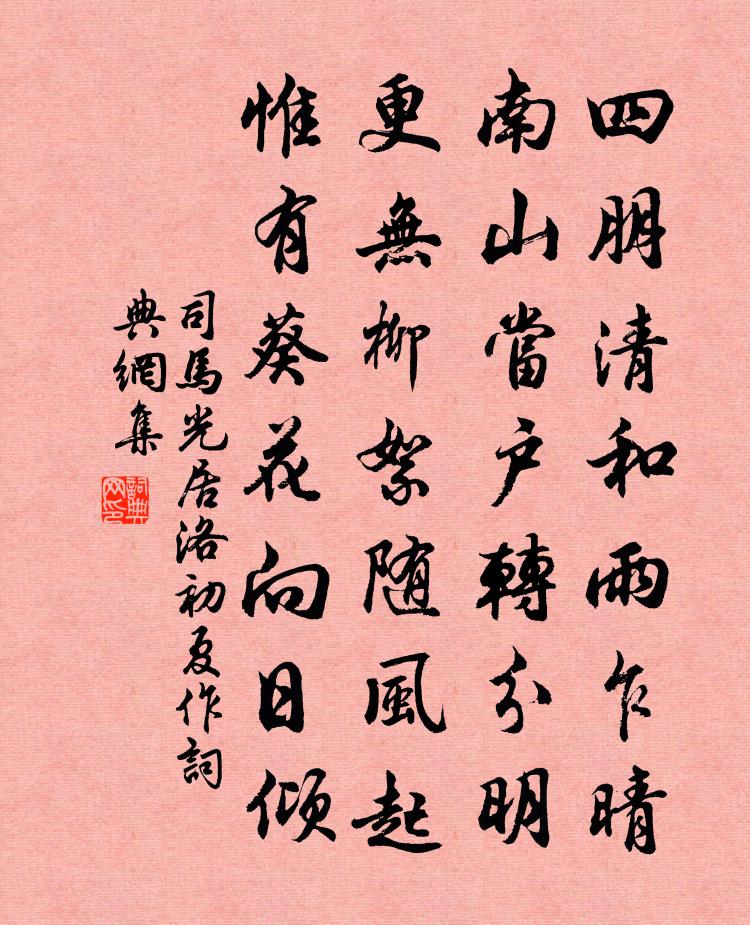 四朋清和雨乍晴
南山當户轉分明
更無柳絮随風起
惟有葵花向日傾
司馬光居洛初夏作詞
典網集
詞典
网印